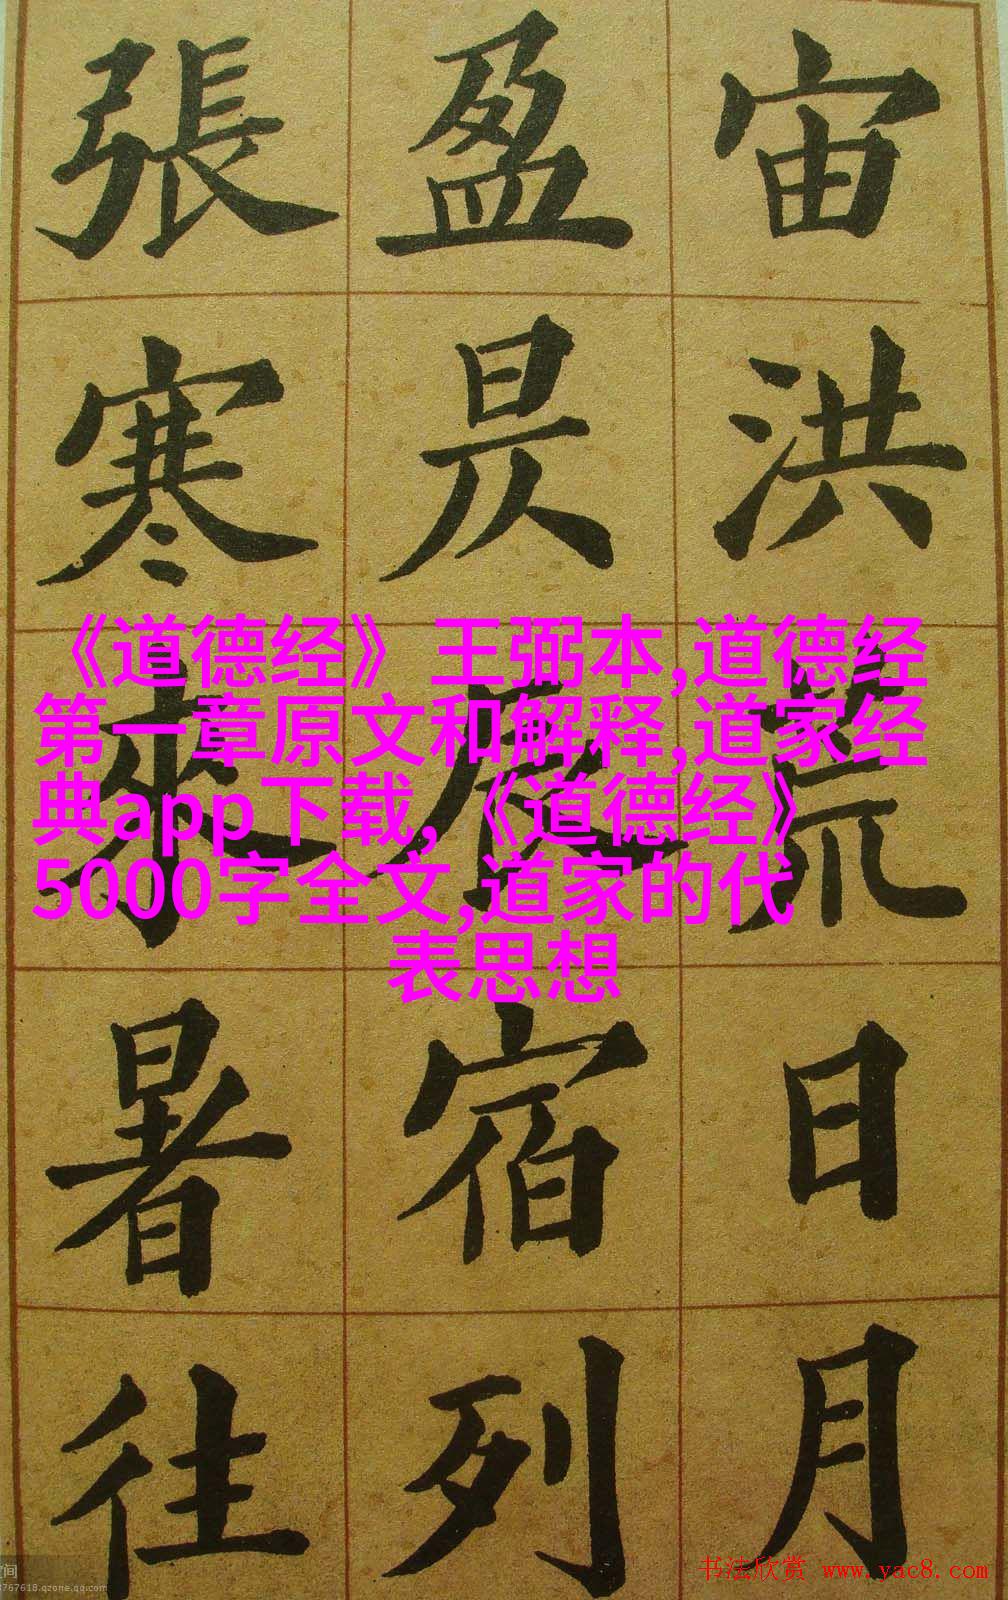 宙洪荒日月
盈昃辰宿列
張寒來暑往
《道德经》王弼本,道德经
第一章原文和解释,道家经
典app下载,《道德经》
5000字全文,道家的代
表思想
间
767618.qzone.qq.com
书法欣赏 www.yac8.com